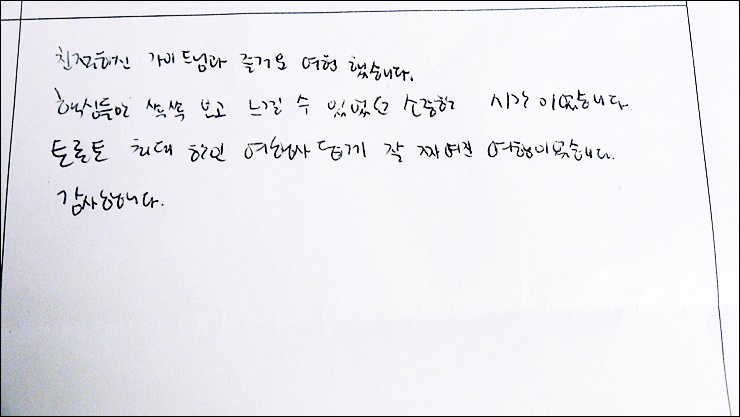 친절하신 가이드님과 즐거운 여행 했습니다.
핵심들만 쏙쏙 보고 느낄 수 있었던 소중한 시간이었습니다
토론토 최대 한인 여행사 답게 잘 짜여진 여행이었습니다.
감사합니다.